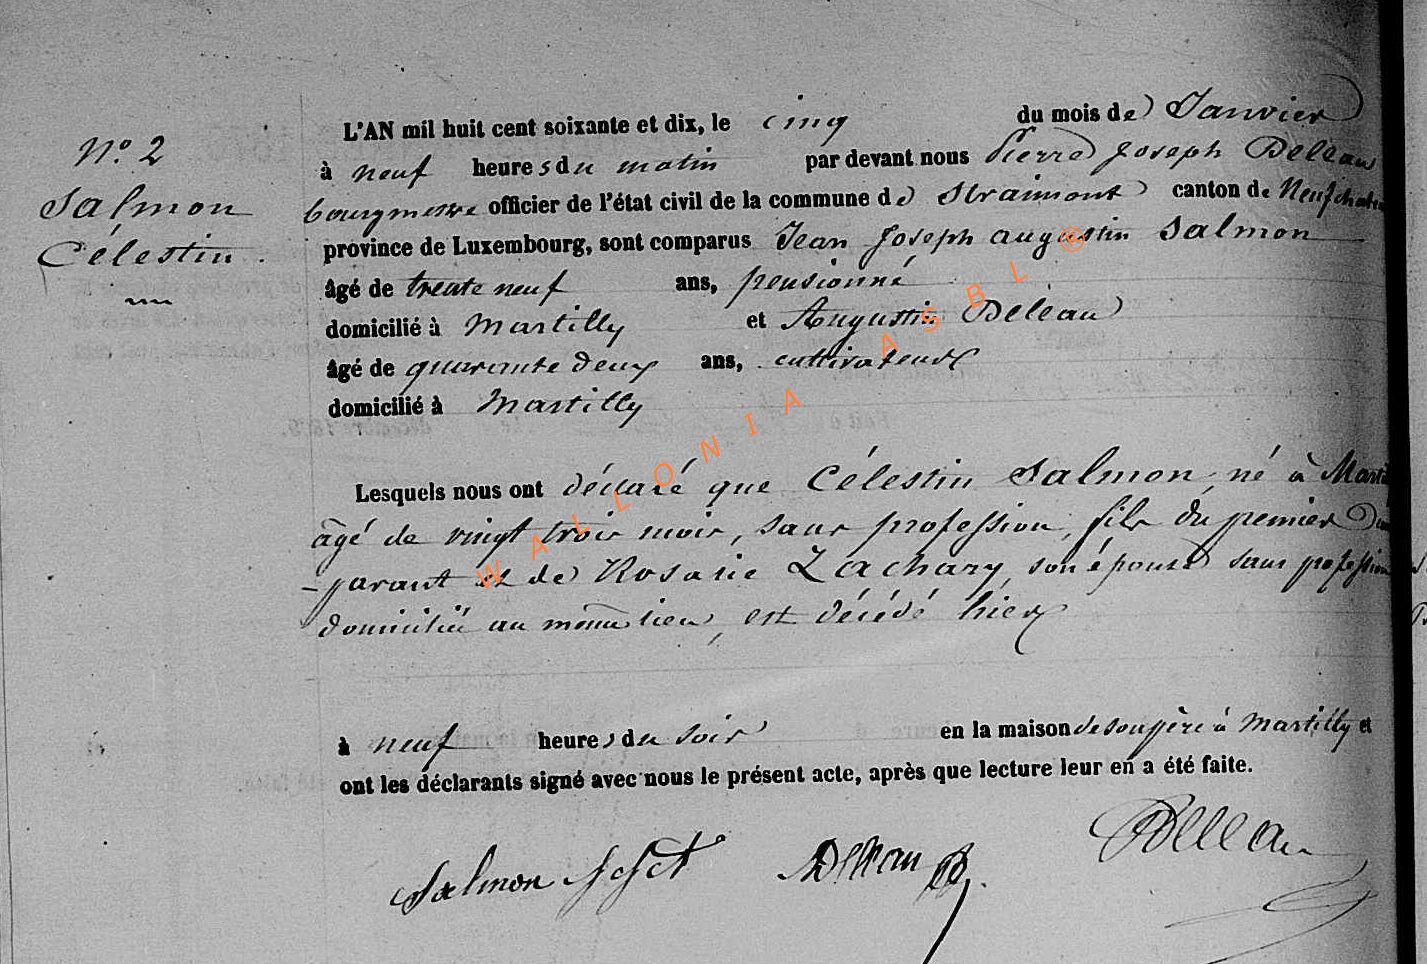 N.o 2
Salmon
Célestin.
L'AN mil huit cent soixante et dix, le cinq du mois de Janvier
à neuf heures du matin par devant nous Pierre Joseph Deleau
bourgmestre officier de l'état civil de la commune de Straimont canton de Neufchateau
province de Luxembourg, sont comparus Jean Joseph augustin Salmon
âgé de trente neuf ans, pensionné
domicilié à Martilly et Augustin Déleau
âgé de quarante deux ans, cultivateurs
domicilié à Martilly
Lesquels nous ont déclaré que Célestin Salmon, né à Martilly
âgé de vingt trois mois, sans profession, fils du premier Com
-parant et de Rosalie Zachary, son épouse sans profession
domiciliée au même lieu, est décédé hier
à neuf heures du soir en la maison de son père à Martilly et
ont les déclarants signé avec nous le présent acte, après que lecture leur en a été faite.
Salmon Deleau Deleau
WALLONIA ASBL ®